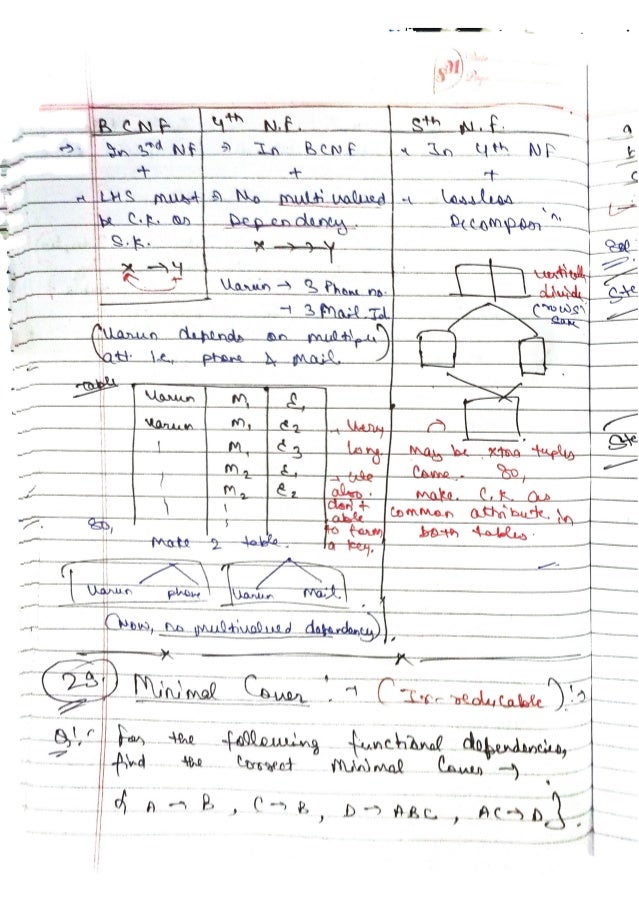 BCNF
→ In 3rd NF
+
→ LHS must
be C.K. or
S.K.
X → Y
4th N.F.
→ In BCNF
+
→ No multivalued
Dependency
X →→ Y
Varun → 3 Phone no.
→ 3 Mail Id
(Varun depends on multiple
att. i.e, phone & mail
5th N.F.
* In 4th NF
+
→ lossless
Decomposi'n.
vertically
divide
(rows
same
may be xtra tuples
come. So,
make C.K as
common attribute in
both tables.
Table
Varun M1 E1
Varun M1 E2
M1 E3
M2 E1
M2 E2
→ Very
long
→ we
also
don't
able
to form
a key.
So,
make 2 table.
Varun phone
Varun mail
(Now, no multivalued dependancy)
29.) Minimal Cover :→ (Ir-reducable) :→
Q1:- For the following functional dependencies,
find the correct minimal Cover →
{ A → B , C → B , D → ABC , AC → D }.
Ste
Ste